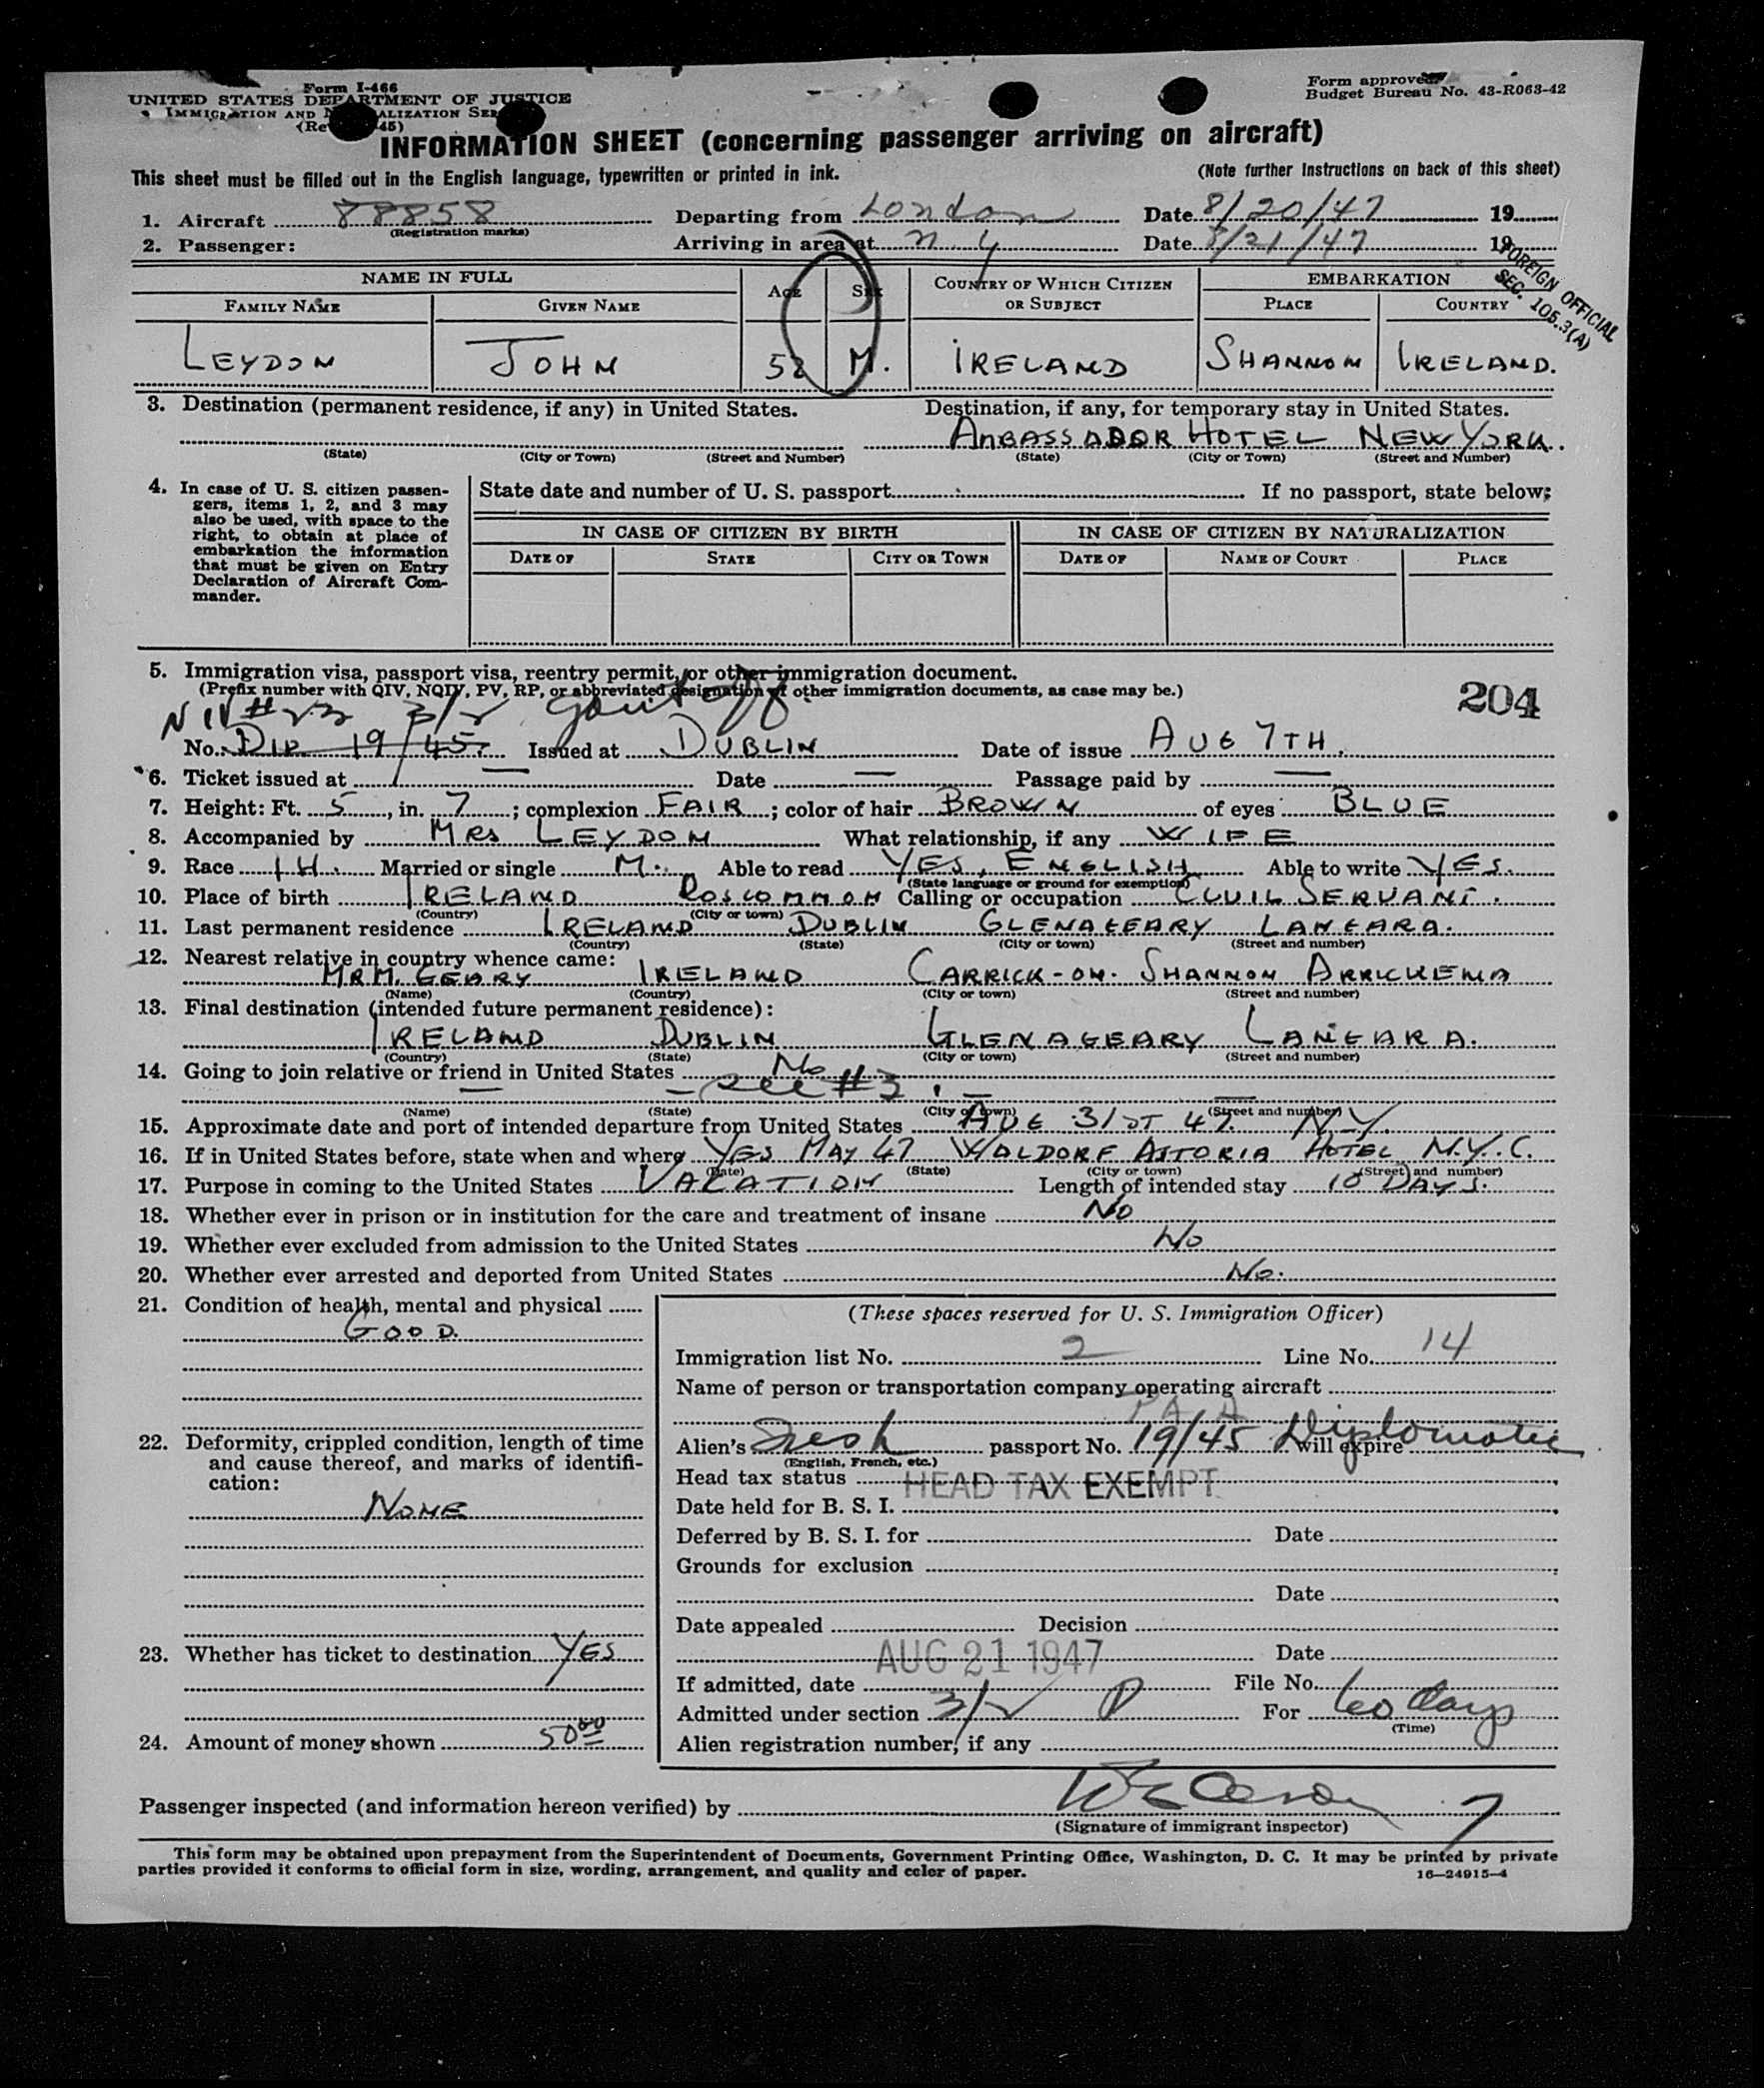 Form I-466
UNITED STATES DEPARTMENT OF JUSTICE
IMMIGRATION AND NATURALIZATION SER
(Re 45)
Form approved.
Budget Bureau No. 43-R063-42
INFORMATION SHEET (concerning passenger arriving on aircraft)
This sheet must be filled out in the English language, typewritten or printed in ink.
(Note further Instructions on back of this sheet)
1. Aircraft 88858 Departing from London Date 8/20/47 19
(Registration marks)
2. Passenger: Arriving in area at N.Y Date 8/21/47 19
FOREIGN OFFICIAL
SEC. 105.3(A)
NAME IN FULL AGE SEX COUNTRY OF WHICH CITIZEN OR SUBJECT EMBARKATION
FAMILY NAME GIVEN NAME PLACE COUNTRY
LEYDON JOHN 52 M. IRELAND SHANNON IRELAND.
3. Destination (permanent residence, if any) in United States. Destination, if any, for temporary stay in United States.
AMBASSADOR HOTEL NEW YORK.
(State) (City or Town) (Street and Number) (State) (City or Town) (Street and Number)
4. In case of U. S. citizen passen-
gers, items 1, 2, and 3 may
also be used, with space to the
right, to obtain at place of
embarkation the information
that must be given on Entry
Declaration of Aircraft Com-
mander.
State date and number of U. S. passport If no passport, state below:
IN CASE OF CITIZEN BY BIRTH IN CASE OF CITIZEN BY NATURALIZATION
DATE OF STATE CITY OR TOWN DATE OF NAME OF COURT PLACE
5. Immigration visa, passport visa, reentry permit, or other immigration document.
(Prefix number with QIV, NQIV, PV, RP, or abbreviated designation of other immigration documents, as case may be.)
204
NIV # 23 3/2 Gov't off
No. DIP 19/45. Issued at DUBLIN Date of issue AUG 7TH.
6. Ticket issued at — Date — Passage paid by —
7. Height: Ft. 5, in. 7; complexion FAIR; color of hair BROWN of eyes BLUE
8. Accompanied by MRS LEYDON What relationship, if any WIFE
9. Race IH. Married or single M. Able to read YES, ENGLISH Able to write YES.
(State language or ground for exemption)
10. Place of birth IRELAND ROSCOMMON Calling or occupation CIVIL SERVANT.
(Country) (City or town)
11. Last permanent residence IRELAND DUBLIN GLENAGEARY LANGARA.
(Country) (State) (City or town) (Street and number)
12. Nearest relative in country whence came:
MR M. GEARY IRELAND CARRICK-ON-SHANNON ARRICKENA
(Name) (Country) (City or town) (Street and number)
13. Final destination (intended future permanent residence):
IRELAND DUBLIN GLENAGEARY LANGARA.
(Country) (State) (City or town) (Street and number)
14. Going to join relative or friend in United States No
— - see #3. — —
(Name) (State) (City or town) (Street and number)
15. Approximate date and port of intended departure from United States AUG 31ST 47. N.Y.
16. If in United States before, state when and where YES MAY 47 WALDORF ASTORIA HOTEL N.Y.C.
(Date) (State) (City or town) (Street and number)
17. Purpose in coming to the United States VACATION Length of intended stay 10 DAYS.
18. Whether ever in prison or in institution for the care and treatment of insane No
19. Whether ever excluded from admission to the United States No
20. Whether ever arrested and deported from United States No.
21. Condition of health, mental and physical
GOOD.
22. Deformity, crippled condition, length of time
and cause thereof, and marks of identifi-
cation:
NONE
23. Whether has ticket to destination YES
24. Amount of money shown 50 00
(These spaces reserved for U. S. Immigration Officer)
Immigration list No. 2 Line No. 14
Name of person or transportation company operating aircraft
PAA
Alien's Irish passport No. 19/45 Diplomatic will expire
(English, French, etc.)
Head tax status HEAD TAX EXEMPT
Date held for B. S. I.
Deferred by B. S. I. for Date
Grounds for exclusion
Date
Date appealed Decision
AUG 21 1947 Date
If admitted, date File No.
Admitted under section 3/2 For 60 days
(Time)
Alien registration number, if any
Passenger inspected (and information hereon verified) by
(Signature of immigrant inspector)
This form may be obtained upon prepayment from the Superintendent of Documents, Government Printing Office, Washington, D. C. It may be printed by private
parties provided it conforms to official form in size, wording, arrangement, and quality and color of paper.
16—24915-4